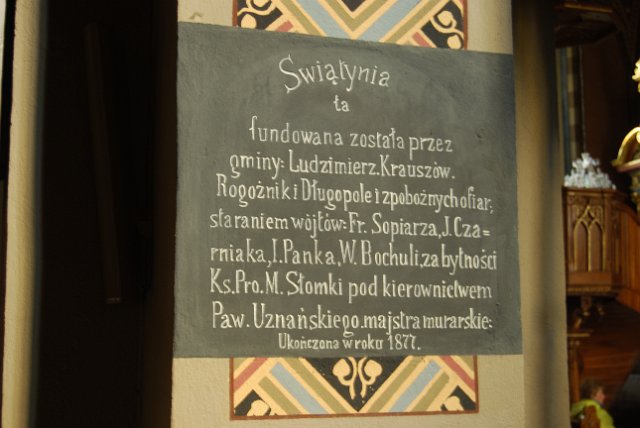 Swiątynia
ta
fundowana została przez
gminy: Ludzimierz. Krauszów.
Rogoźnik i Długopole i z pobożnych ofiar,
staraniem wójtów: Fr. Sopiarza, J. Cza=
rniaka, I. Panka, W. Bochuli, za bytności
Ks. Pro. M. Słomki pod kierownictwem
Paw. Uznańskiego. majstra murarskie:
Ukończona w roku 1877.